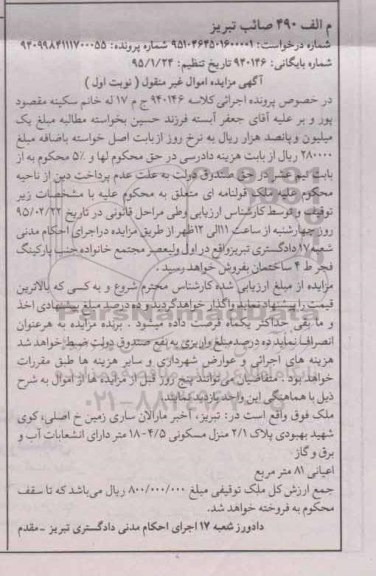 م الف ۴۹۰ صائب تبریز
شماره درخواست: ۹۵۱۰۴۶۴۵۰۱۶۰۰۰۰۱ شماره پرونده: ۹۴۰۹۹۸۴۱۱۱۷۰۰۰۵۵
شماره بایگانی: ۹۴۰۱۴۶ تاریخ تنظیم: ۹۵/۱/۲۴
آگهی مزایده اموال غیر منقول ( نوبت اول )
در خصوص پرونده اجرائی کلاسه ۹۴۰۱۴۶ ج م ۱۷ له خانم سکینه مقصود
پور و بر علیه آقای جعفر آبسته فرزند حسین بخواسته مطالبه مبلغ یک
میلیون و پانصد هزار ریال به نرخ روز از بابت اصل خواسته باضافه مبلغ
۲۸۰۰۰۰ ریال از بابت هزینه دادرسی در حق محکوم لها و ۵% محکوم به از
بابت نیم عشر در حق صندوق دولت به علت عدم پرداخت دین از ناحیه
محکوم علیه ملک قولنامه ای متعلق به محکوم علیه با مشخصات زیر
توقیف و توسط کارشناس ارزیابی وطی مراحل قانونی در تاریخ ۹۵/۰۲/۲۲
روز چهارشنبه از ساعت ۱۱الی ۱۲ظهر از طریق مزایده دراجرای احکام مدنی
شعبه۱۷دادگستری تبریزواقع در اول ولیعصر مجتمع خانواده جنب پارکینگ
فجر ط ۴ ساختمان بفروش خواهد رسید .
مزایده از مبلغ ارزیابی شده کارشناس محترم شروع و به کسی که بالاترین
قیمت را پیشنهاد نماید واگذار خواهد گردید و ده درصد مبلغ پیشنهادی اخذ
و ما بقی حداکثر یکماه فرصت داده میشود . برنده مزایده به هر عنوان
انصراف نماید ده درصد مبلغ واریزی به نفع صندوق دولت ضبط خواهد شد
هزینه های اجرائی و عوارض شهرداری و سایر هزینه ها طبق مقررات
خواهد بود . متقاضیان می توانند پنج روز قبل از مزایده ها از اموال به شرح
ذیل با هماهنگی این واحد بازدید نمایند.
ملک فوق واقع است در: تبریز، آخر مارالان ساری زمین خ اصلی، کوی
شهید بهبودی پلاک ۲/۱ منزل مسکونی ۱۸-۴/۵ متر دارای انشعابات آب و
برق و گاز
اعیانی ۸۱ متر مربع
جمع ارزش کل ملک توقیفی مبلغ ۸۰۰/۰۰۰/۰۰۰ ریال می‌باشد که تا سقف
محکوم به فروخته خواهد شد.
دادورز شعبه ۱۷ اجرای احکام مدنی دادگستری تبریز - مقدم
ParsNamadData